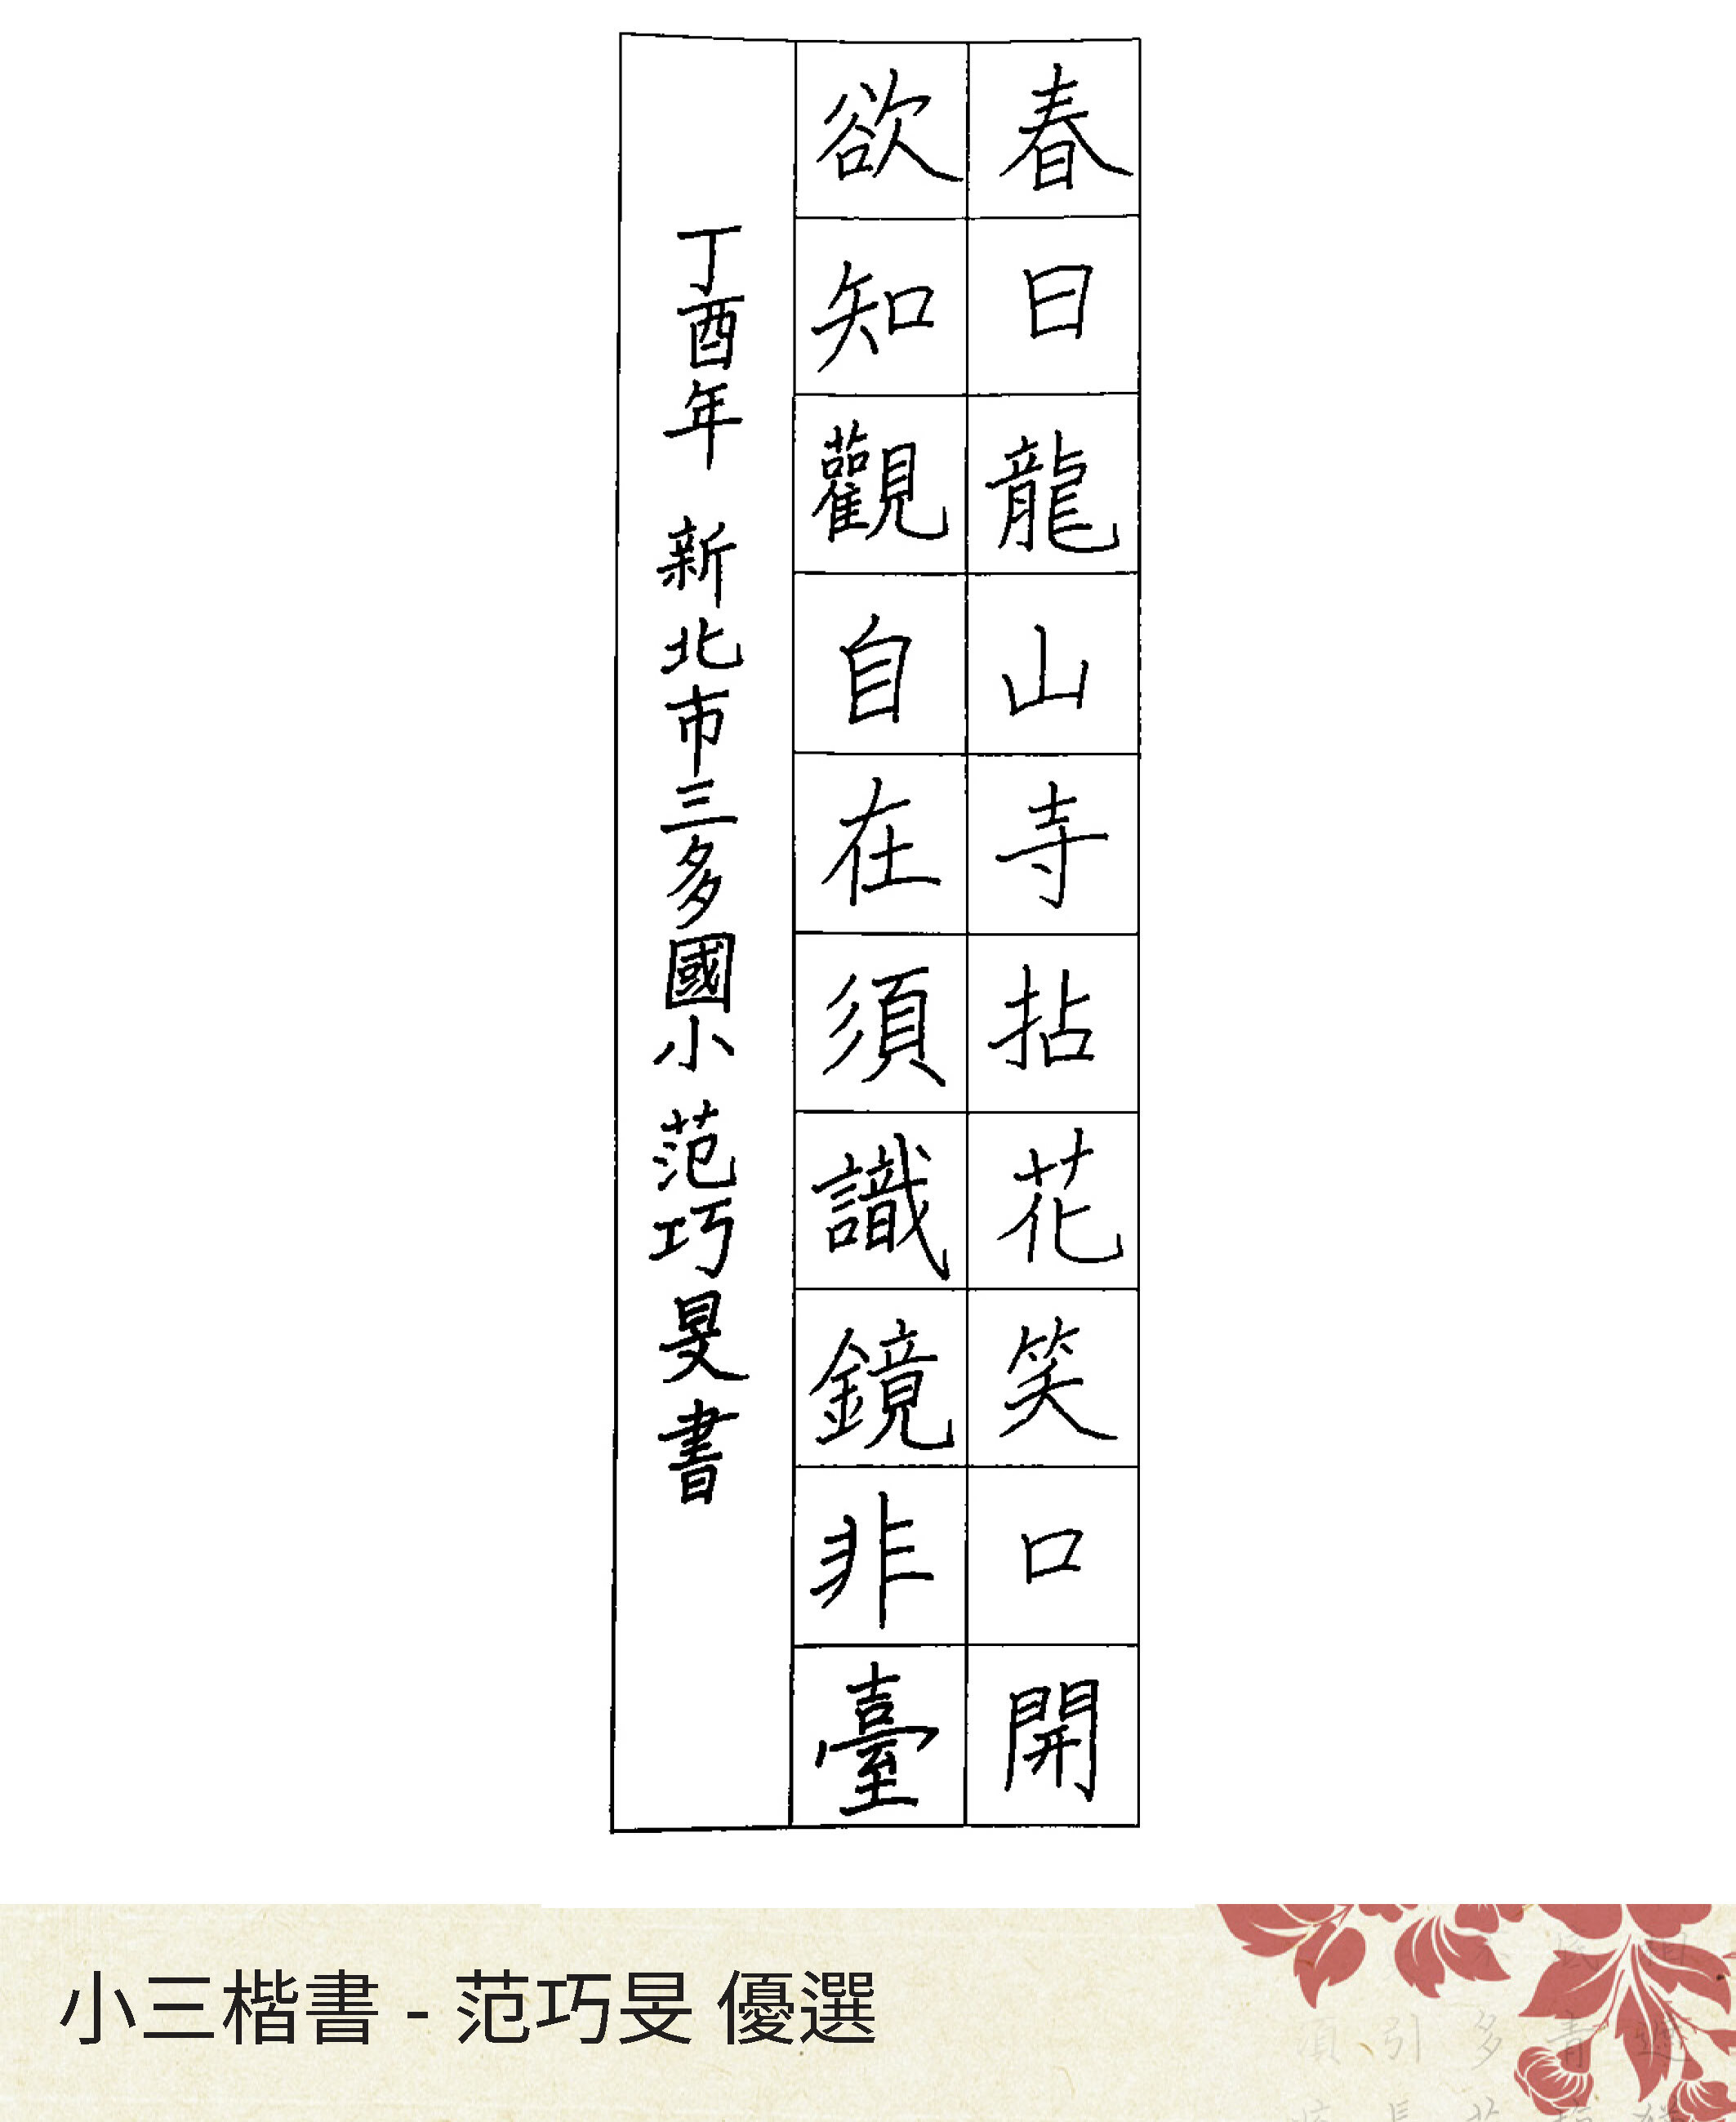 春日龍山寺拈花笑口開
欲知觀自在須識鏡非臺
丁酉年 新北市三多國小 范巧旻書
小三楷書 - 范巧旻 優選